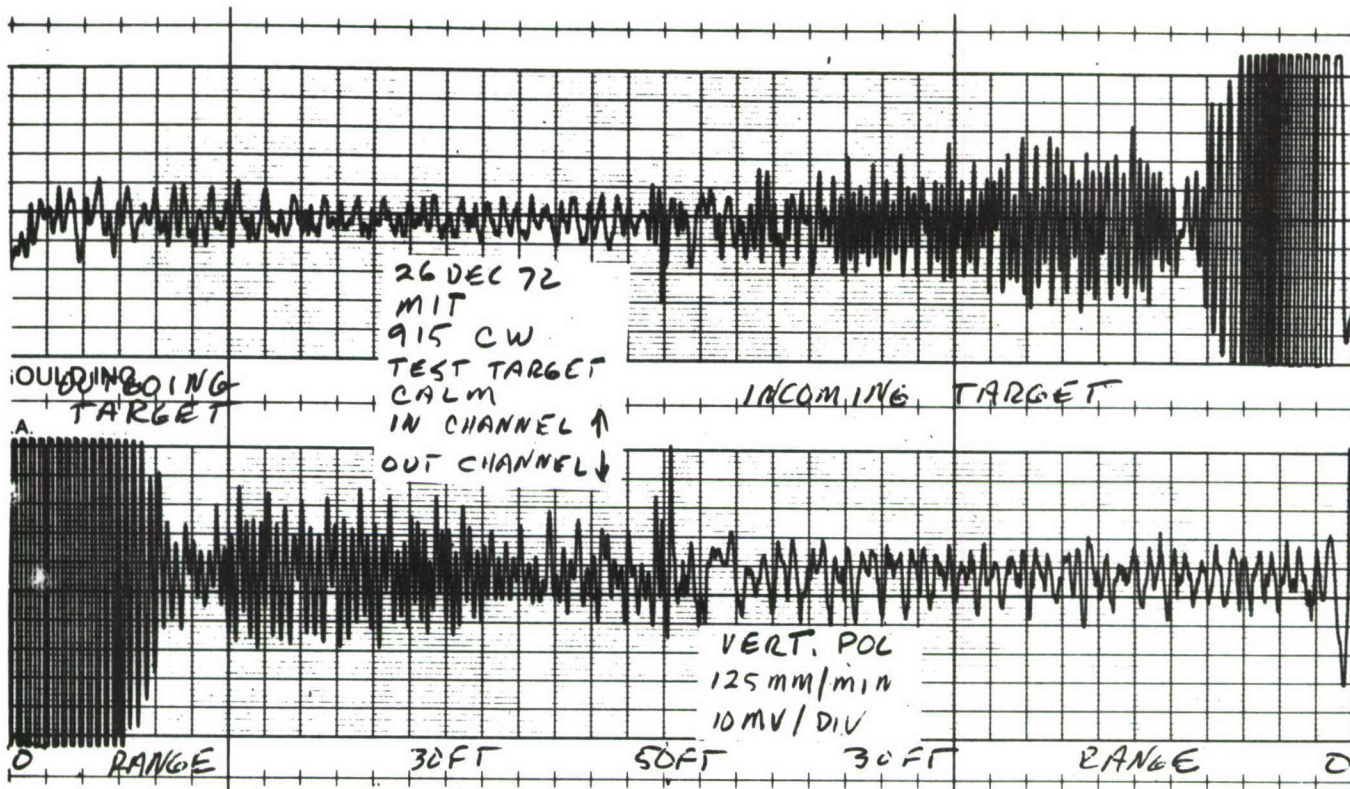 26 DEC 72
MIT
915 CW
TEST TARGET
CALM
IN CHANNEL ↑
OUT CHANNEL ↓
OULD INC
OUTGOING
TARGET
INCOMING TARGET
A.
VERT. POL
125 mm/min
10 MV/DIV
0 RANGE 30FT 50FT 30FT RANGE 0